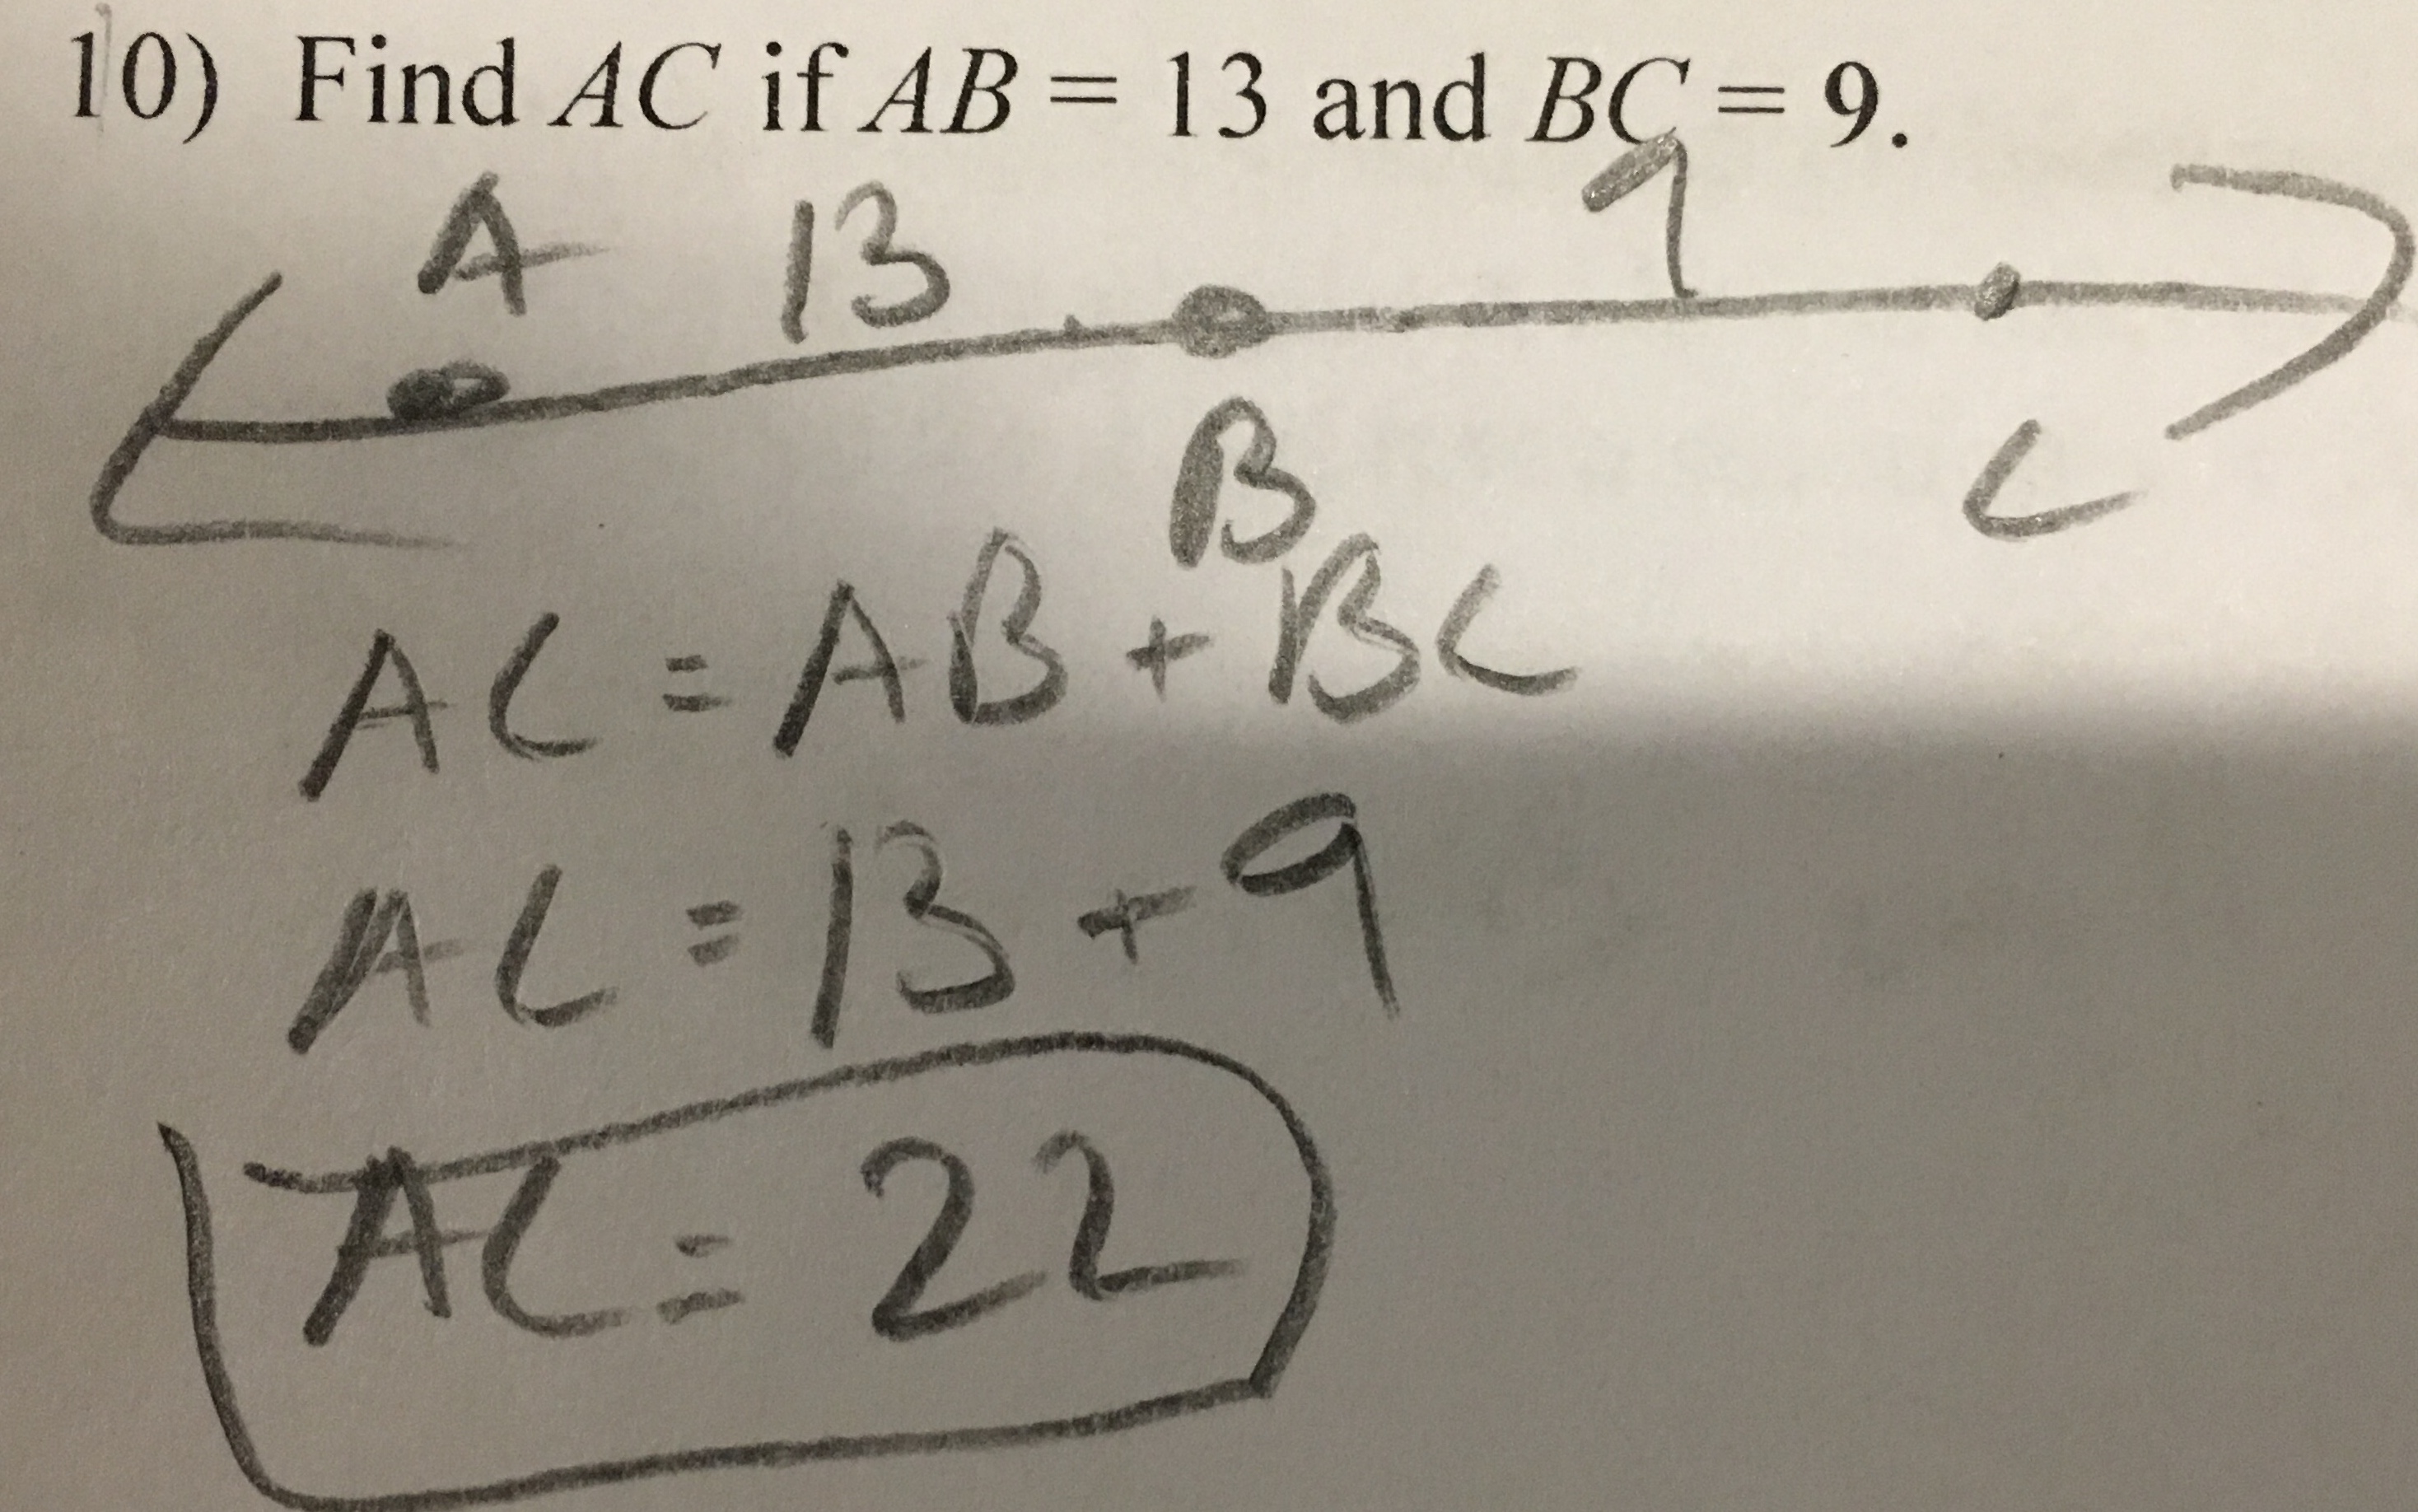 10) Find AC if AB = 13 and BC = 9.
A 13 9
B C
AC = AB + BC
AC = 13 + 9
AC = 22